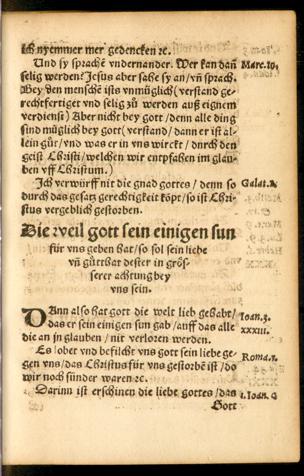 ich nyemmer mer gedencken ꝛc.
Und sy sprachē vndernander. Wer kan dañ Marc. 10.
selig werden? Jesus aber sahe sy an/vñ sprach.
Bey den menschē ists vnmüglich (verstand ge-
rechtfertiget vnd selig zů werden auß eignem
verdienst) Aber nicht bey gott/denn alle ding
sind müglich bey gott (verstand/dann er ist al-
lein gůt/vnd was er in vns wirckt/durch den
geist Christi/welchen wir entpfahen im glau-
ben vff Christum)
Ich verwürff nit die gnad gottes/denn so Galat. 2.
durch das gesatz gerechtigkeit kōpt/so ist Chri-
stus vergeblich gestorben.
Die weil gott sein einigen sun
für vns geben hat/so sol sein liebe
vñ güttbat dester in grös-
serer achtung bey
vns sein.
DAnn also hat gott die welt lieb gehabt/
das er sein einigen sun gab/auff das alle Ioan. 3.
die an jn glauben/nit verloren werden. XXXIII.
Es lobet vnd befilcht vns gott sein liebe ge-
gen vns/das Christus für vns gestorbē ist/do Roma. 5.
wir noch sünder waren ꝛc.
Darinn ist erschinen die liebe gottes/das 1. Ioan. 4.
Gott